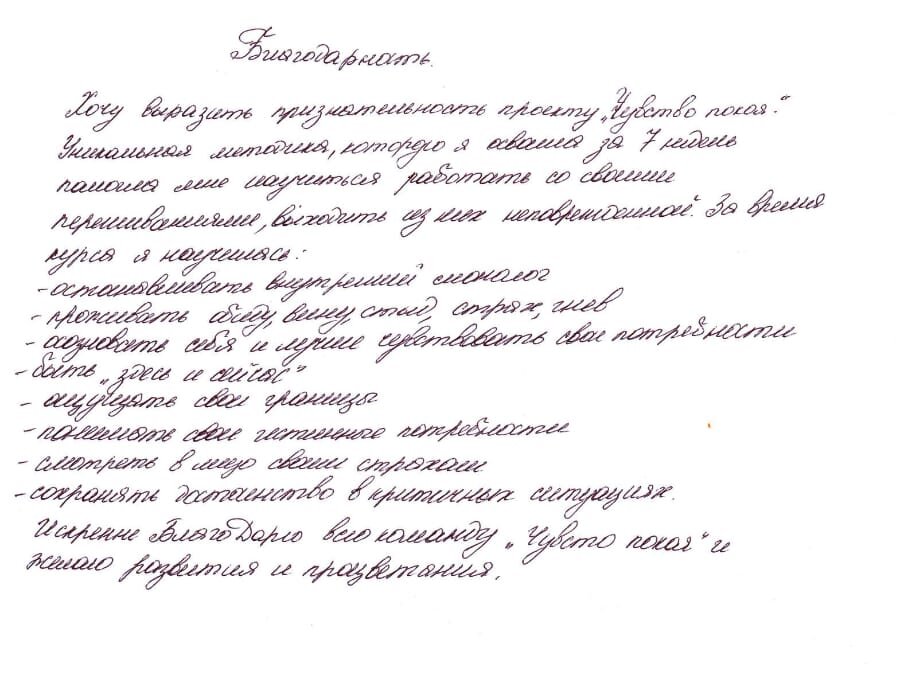 Благодарность.
Хочу выразить признательность проекту „Чувство покоя".
Уникальная методика, которую я освоила за 7 недель
помогла мне научиться работать со своими
переживаниями, выходить из них неповрежденной. За время
курса я научилась:
- останавливать внутренний монолог
- проживать обиду, вину, стыд, страх, гнев
- осознавать себя и лучше чувствовать свои потребности
- быть „здесь и сейчас"
- ощущать свои границы
- понимать свои истинные потребности
- смотреть в лицо своим страхам
- сохранять достоинство в критичных ситуациях.
Искренне БлагоДарю всю команду „Чувсто покоя" и
желаю развития и процветания.